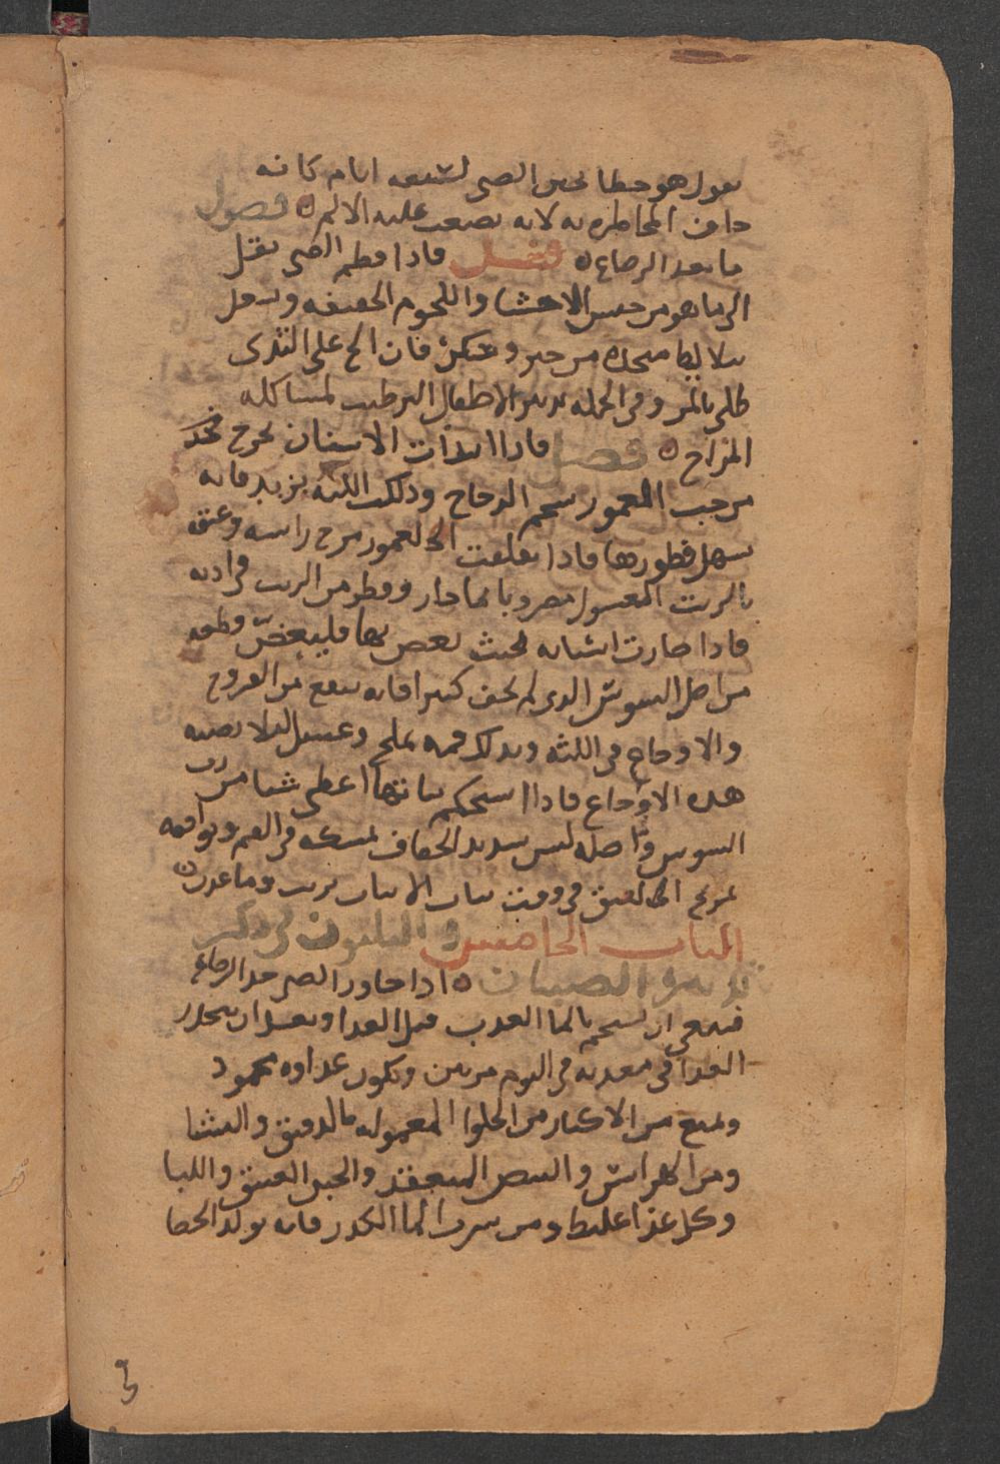 يقول هو خطا نحن الصبى لسبعه ايام كانه
خاف المخاطره به لانه يصعب عليه الالم ه فصول
ما بعد الرضاع ه فصل فاذا فطم الصبى نقل
الى ما هو من جنس الاحشا واللحوم الخفيفه و
بلاليط متخذه من خبز وسكر فان الح على الثدى
طلى بالمر وفى الجمله تدبير الاطفال الترطيب لمشاكله
المزاج ه فصل فاذا ابتدات الاسنان تخرج فخذ
من حب المعمور شحم الدجاج ودلك اللثه بزبد فانه
يسهل فطورها فاذا تفلقت الى العمور مرخ راسه وعنقه
بالزيت المغسول مضروبا بما حار وقطر من الزيت فى اذنه
فاذا صارت اسنانه بحيث يعض بها فليعض قطعه
من اصل السوس الذى لم يجف كثيرا فانه ينفع من القروح
والاوجاع فى اللثه ويدلك فمه بملح وعسل ليلا يصيبه
هذه الاوجاع فاذا استحكم نباتها اعطى شيا من رب
السوس واصله ليس شديد الجفاف يمسكه فى الفم ويوافقه
تمريخ العنق فى وقت نبات الانياب بزيت وما عذب ه
الباب الخامس و الثلثون فى ذكر
تدبير الصبيان ه اذا جاوز الصبى حد الرضاع
فينبغى ان يستحم بالما العذب قبل الغدا وبعد ان ينحدر
الغدا فى معدته فى اليوم مرتين ويكون غداوه محمود
ويمنع من الاكثار من الحلوا المعموله بالدقيق والنشا
ومن الهرايس والبيض المنعقد والجبن العتيق واللبا
وكل غذا غليظ ومن شرب الما الكدر فانه يولد الحصا